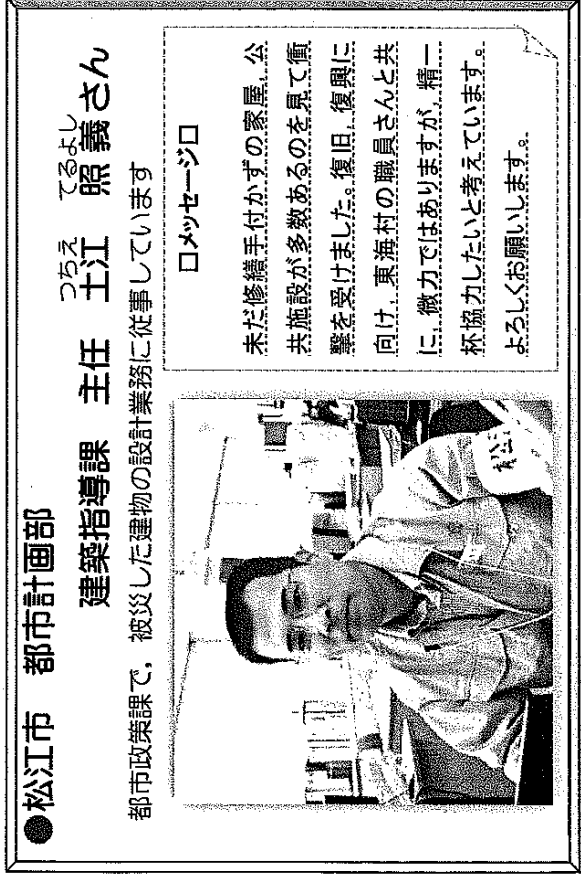 ●松江市 都市計画部
つちえ てるよし
建築指導課 主任 土江 照義さん
都市政策課で，被災した建物の設計業務に従事しています
□メッセージ□
未だ修繕手付かずの家屋，公
共施設が多数あるのを見て衝
撃を受けました。復旧，復興に
向け，東海村の職員さんと共
に，微力ではありますが，精一
杯協力したいと考えています。
よろしくお願いします。
松江